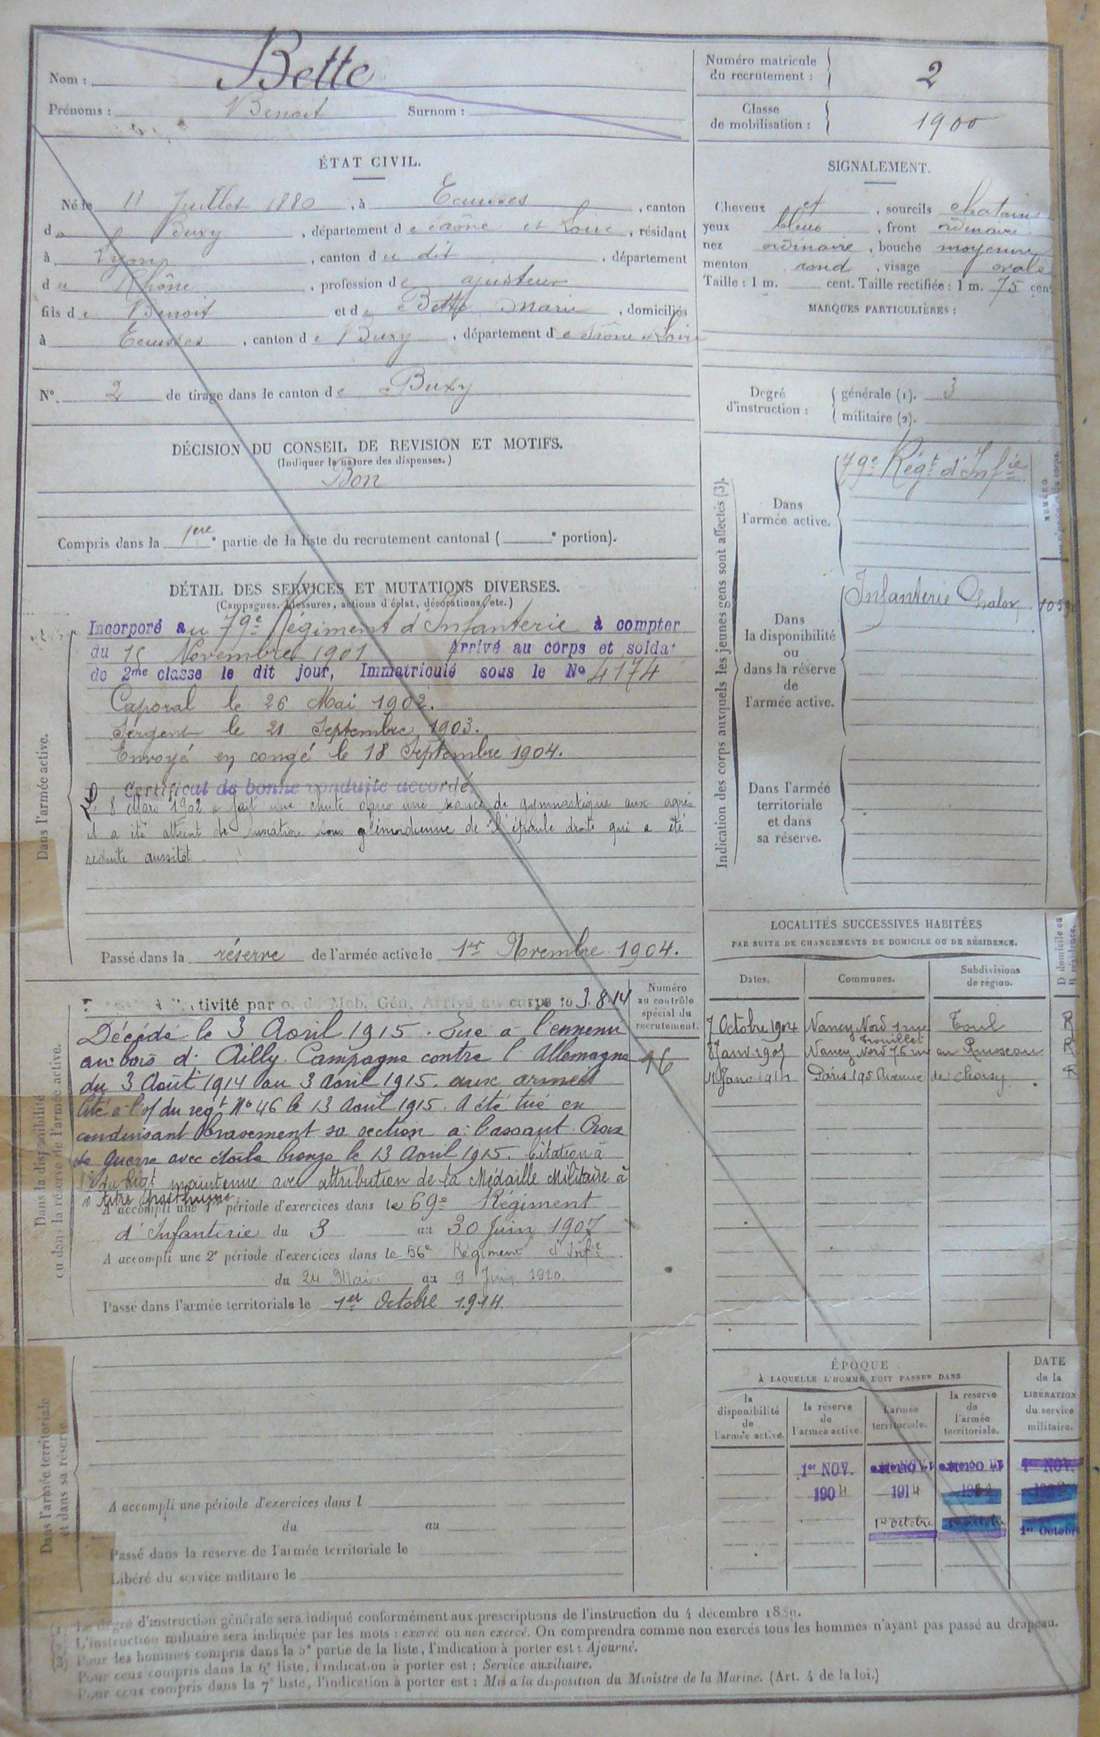 Nom : Bette
Prénoms : Benoit Surnom :
Numéro matricule du recrutement : 2
Classe de mobilisation : 1900
ÉTAT CIVIL.
Né le 11 Juillet 1880, à Ecuisses, canton
de Buxy, département de Saône et Loire, résidant
à Lyon, canton du dit, département
du Rhône, profession d'ajusteur
fils de Benoit et de Bette Marie, domiciliés
à Ecuisses, canton de Buxy, département de Saône et Loire
N° 2 de tirage dans le canton de Buxy
SIGNALEMENT.
Cheveux et, sourcils chatains
yeux bleus, front ordinaire
nez ordinaire, bouche moyenne
menton rond, visage ovale
Taille : 1 m. cent. Taille rectifiée : 1 m. 75 cent
MARQUES PARTICULIÈRES :
Degré d'instruction : générale (1). 3
militaire (2).
DÉCISION DU CONSEIL DE REVISION ET MOTIFS.
(Indiquer la nature des dispenses.)
Bon
Compris dans la 1ere partie de la liste du recrutement cantonal ( e portion).
DÉTAIL DES SERVICES ET MUTATIONS DIVERSES.
(Campagnes, blessures, actions d'éclat, décorations, etc.)
Dans l'armée active.
Incorporé au 79e Régiment d'Infanterie à compter
du 15 Novembre 1901 Arrivé au corps et soldat
de 2me classe le dit jour, Immatriculé sous le No 4174
Caporal le 26 Mai 1902.
Sergent le 21 Septembre 1903.
Envoyé en congé le 18 Septembre 1904.
Certificat de bonne conduite accordé
Le 8 Mars 1902 a fait une chute après une séance de gymnastique aux agrès
et a été atteint de luxation sous glénoidienne de l'épaule droite qui a été
réduite aussitôt.
Passé dans la réserve de l'armée active le 1er Novembre 1904.
Indication des corps auxquels les jeunes gens sont affectés (3).
Dans l'armée active.
79e Régt d'Infie
Dans la disponibilité ou dans la réserve de l'armée active.
Infanterie Chalon
Dans l'armée territoriale et dans sa réserve.
LOCALITÉS SUCCESSIVES HABITÉES
PAR SUITE DE CHANGEMENTS DE DOMICILE OU DE RÉSIDENCE.
Dates. Communes. Subdivisions de région. D domicile ou R résidence.
7 Octobre 1904 Nancy Nord 1 rue Toul R
8 Janv 1907 Nancy Nord 75 rue R
Paris 195 Avenue de Choisy R
Dans la disponibilité ou dans la réserve de l'armée active.
Numéro au contrôle spécial du recrutement.
Activité par o. de Mob. Gén. Arrivé au corps le 3.8.14
Décédé le 3 Avril 1915. Tué à l'ennemi
au bois d'Ailly. Campagne contre l'Allemagne
du 3 Août 1914 au 3 Avril 1915. aux armées
Cité à l'o/ du régt No 46 le 13 Avril 1915. A été tué en
conduisant bravement sa section à l'assaut. Croix
de Guerre avec étoile bronze le 13 Avril 1915. Citation à
l'o/ du Régt maintenue avec attribution de la Médaille Militaire à
titre posthume
A accompli une 1re période d'exercices dans le 69e Régiment
d'Infanterie du 3 au 30 Juin 1907
A accompli une 2e période d'exercices dans le 56e Régiment d'Infie
du 24 Mai au 9 Juin 1910.
Passé dans l'armée territoriale le 1er Octobre 1914.
Dans l'armée territoriale et dans sa réserve.
A accompli une période d'exercices dans l
du au
Passé dans la réserve de l'armée territoriale le
Libéré du service militaire le
ÉPOQUE
À LAQUELLE L'HOMME DOIT PASSER DANS
la disponibilité de l'armée active.
la réserve de l'armée active.
l'armée territoriale.
la réserve de l'armée territoriale.
DATE de la LIBÉRATION du service militaire.
1er NOV. 1904
1914
1er octobre
1er NOV.
1er Octobre
(1) Le degré d'instruction générale sera indiqué conformément aux prescriptions de l'instruction du 4 décembre 1889.
(2) L'instruction militaire sera indiquée par les mots : exercé ou non exercé. On comprendra comme non exercés tous les hommes n'ayant pas passé au drapeau.
(3) Pour les hommes compris dans la 5e partie de la liste, l'indication à porter est : Ajourné.
Pour ceux compris dans la 6e liste, l'indication à porter est : Service auxiliaire.
Pour ceux compris dans la 7e liste, l'indication à porter est : Mis à la disposition du Ministre de la Marine. (Art. 4 de la loi.)